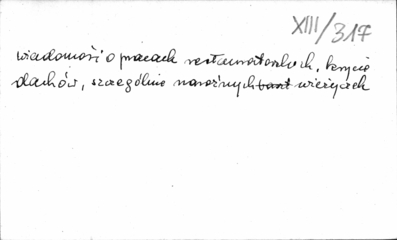 XIII/317
wiadomości o pracach restauratorskich, krycie
dachów, szczególnie narożnych baszt wieżyczek